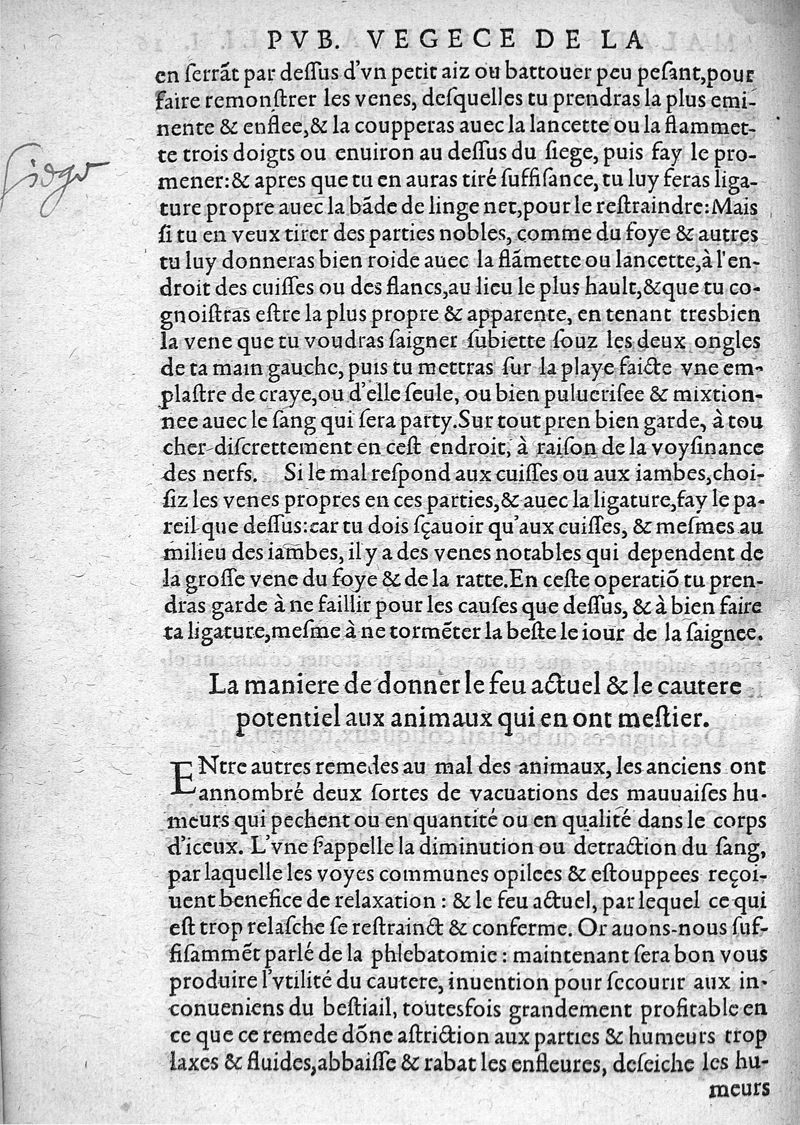 PVB. VEGECE DE LA
en ſerrãt par deſſus d'vn petit aiz ou battouer peu peſant,pour
faire remonſtrer les venes, deſquelles tu prendras la plus emi-
nente & enflee,& la coupperas auec la lancette ou la flammet-
te trois doigts ou enuiron au deſſus du ſiege, puis fay le pro-
mener:& apres que tu en auras tiré ſuffiſance, tu luy feras liga-
ture propre auec la bãde de linge net,pour le reſtraindre:Mais
ſi tu en veux tirer des parties nobles, comme du foye & autres
tu luy donneras bien roide auec la flãmette ou lancette,à l'en-
droit des cuiſſes ou des flancs,au lieu le plus hault,&que tu co-
gnoiſtras eſtre la plus propre & apparente, en tenant tresbien
la vene que tu voudras ſaigner ſubiette ſouz les deux ongles
de ta main gauche, puis tu mettras ſur la playe faicte vne em-
plaſtre de craye,ou d'elle ſeule, ou bien pulueriſee & mixtion-
nee auec le ſang qui ſera party.Sur tout pren bien garde, à tou
cher diſcrettement en ceſt endroit, à raiſon de la voyſinance
des nerfs. Si le mal reſpond aux cuiſſes ou aux iambes,choi-
ſiz les venes propres en ces parties,& auec la ligature,fay le pa-
reil que deſſus:car tu dois ſçauoir qu'aux cuiſſes, & meſmes au
milieu des iambes, il y a des venes notables qui dependent de
la groſſe vene du foye & de la ratte.En ceſte operatiõ tu pren-
dras garde à ne faillir pour les cauſes que deſſus, & à bien faire
ta ligature,meſme à ne tormẽter la beſte le iour de la ſaignee.
La maniere de donner le feu actuel & le cautere
potentiel aux animaux qui en ont meſtier.
ENtre autres remedes au mal des animaux, les anciens ont
annombré deux ſortes de vacuations des mauuaiſes hu-
meurs qui pechent ou en quantité ou en qualité dans le corps
d'iceux. L'vne ſ'appelle la diminution ou detraction du ſang,
par laquelle les voyes communes opilees & eſtouppees reçoi-
uent benefice de relaxation : & le feu actuel, par lequel ce qui
eſt trop relaſche ſe reſtrainct & conferme. Or auons-nous ſuf-
fiſammẽt parlé de la phlebatomie : maintenant ſera bon vous
produire l'vtilité du cautere, inuention pour ſecourir aux in-
conueniens du beſtiail, toutesfois grandement profitable en
ce que ce remede dõne aſtriction aux parties & humeurs trop
laxes & fluides,abbaiſſe & rabat les enfleures, deſeiche les hu-
meurs